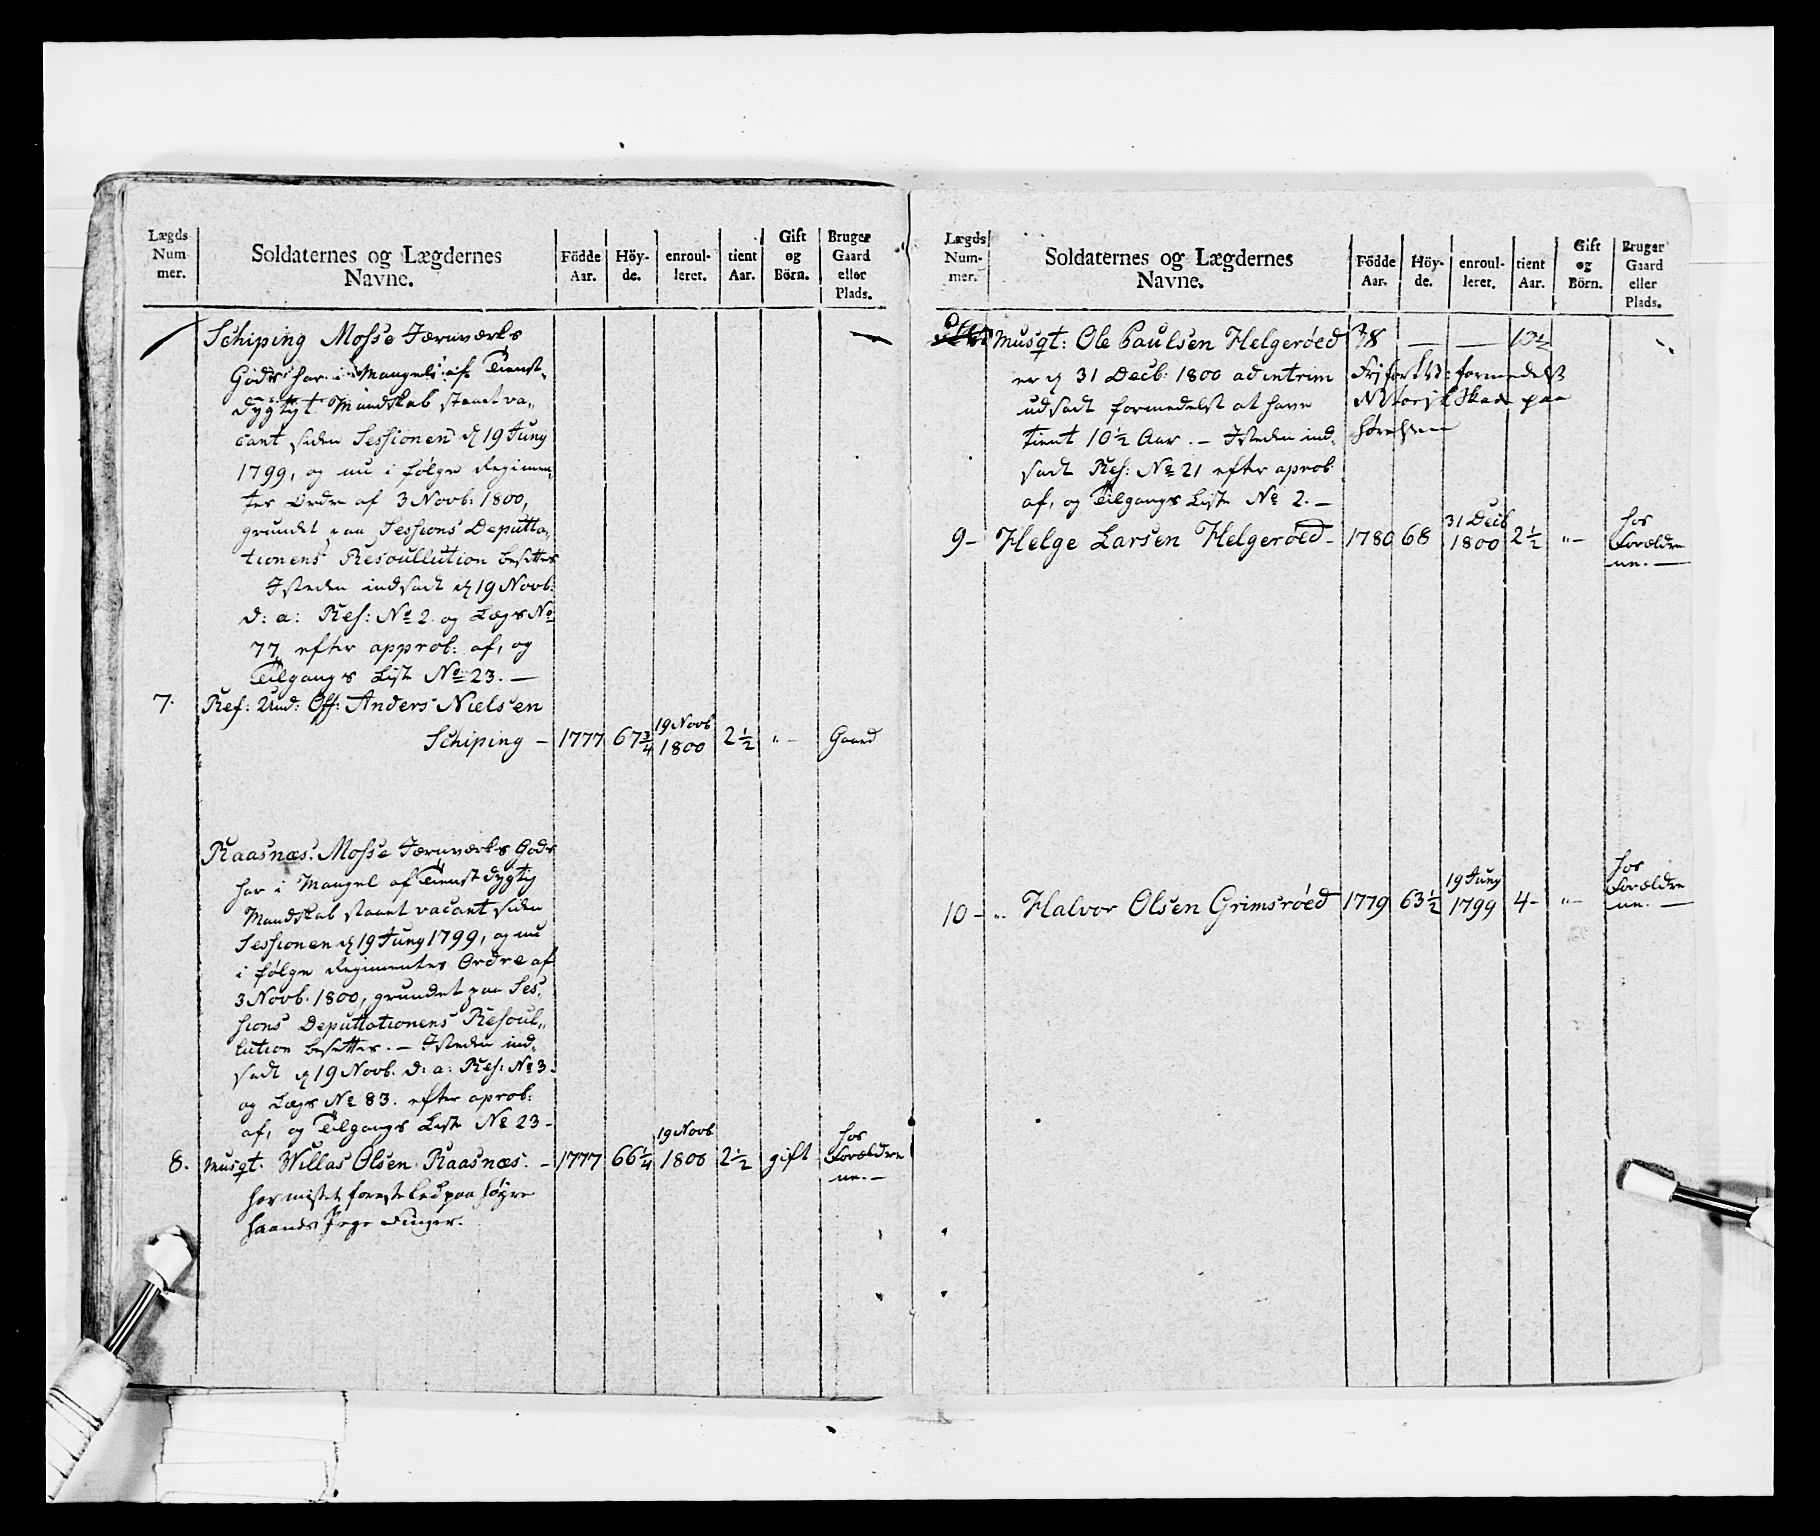 Lægds Num- mer.
Soldaternes og Lægdernes Navne.
Födde Aar.
Höy- de.
enroul- leret.
tient Aar.
Gift og Börn.
Bruger Gaard eller Plads.
Schiping Mosse Jærnværks
Gods har i Mangel af Tienst-
dygtigt Mandskab staaet va-
cant siden Sessionen d 19 Juny
1799, og nu i følge Regimen-
tes Ordre af 3 Novb. 1800,
grundet paa Sessions Deputta-
tionens Resoullution besettes
Isteden indsadt d 19 Novb:
d: a: Res: No 2. og Lægs No
77, efter approb: af, og
Tilgangs List No 23. —
7. Ref: Und: Off: Anders Nielsen
Schiping - 1777 67 3/4 19 Novb 1800 2 1/2 "- Gaard
Raasnæs. Mosse Jærnværks Gods
har i Mangel af Tienstdygtig
Mandskab staaet vacant siden
Sessionen d 19 Juny 1799, og nu
i følge Regimentes Ordre af
3 Novb. 1800, grundet paa Ses-
sions Deputtationens Resoul-
lution besettes. — Isteden ind-
sadt d 19 Novb. d: a: Res: No 3.
og Lægs No 83. efter aprob:
af, og Tilgangs Liste No 23-
8. Musqt. Willas Olsen Raasnæs. - 1777 66 1/4 19 Novb 1800 2 1/2 gift hos Forældre ne. —
har mistet forreste Led paa høyre
haands Pege Finger.
Lægds Num- mer.
Soldaternes og Lægdernes Navne.
Födde Aar.
Höy- de.
enroul- leret.
tient Aar.
Gift og Börn.
Bruger Gaard eller Plads.
Musqt: Ole Paulsen Helgerøed — — 10 1/2
er d 31 Decb: 1800 ad intrim
udsadt formedelst at have
tient 10 1/2 Aar. — Isteden ind-
sadt Res: No 21 efter aprob:
af, og Tilgangs Liste No 2. —
formedelst
Skade paa
hørelsen
9- Helge Larsen Helgerøed - 1780 68 31 Decb 1800 2 1/2 "- hos Forældre ne. —
10- " Halvor Olsen Grimsrøed 1779 63 1/2 19 Juny 1799 4- "- hos Forældre ne. —